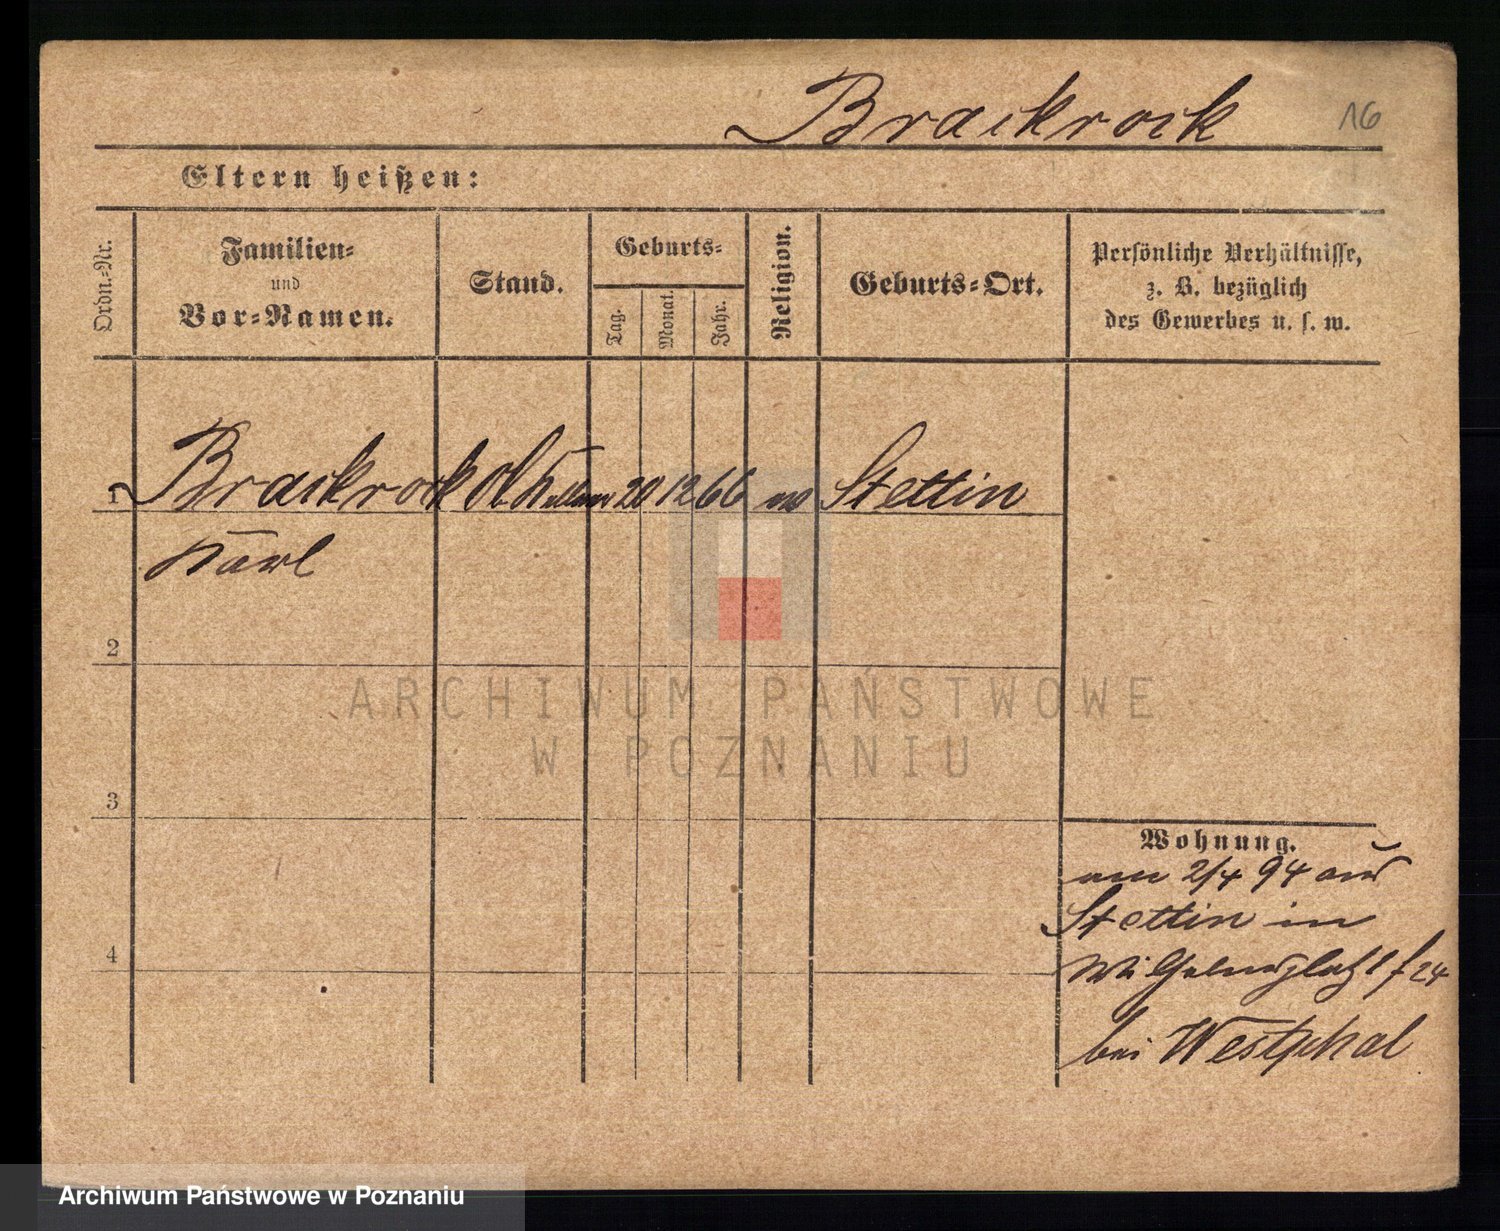 Brackrock 16
Eltern heißen:
Ordn.-Nr.
Familien-
und
Vor-Namen.
Stand.
Geburts-
Tag.
Monat.
Jahr.
Religion.
Geburts-Ort.
Persönliche Verhältnisse,
z. B. bezüglich
des Gewerbes u. s. w.
1 Brackrock Ob. Kellner 20 12 66 ev Stettin
Karl
2
3
4
Wohnung.
am 2/4 94 aus
Stettin in
Wilhelmsplatz 1 f 24
bei Westphal
ARCHIWUM PAŃSTWOWE
W POZNANIU
Archiwum Państwowe w Poznaniu